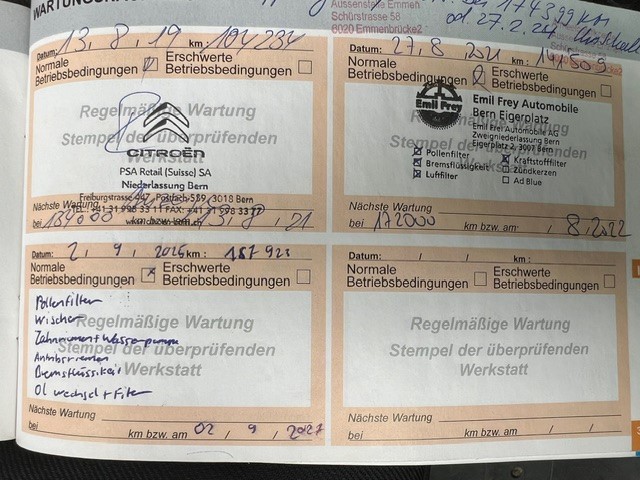 Aussenstelle Emmen
Schürstrasse 58
6020 Emmenbrücke2
174399 km
od 27.2.24
Datum: 13, 8, 19 km: 104234
Normale Betriebsbedingungen
Erschwerte Betriebsbedingungen
Regelmäßige Wartung
Stempel der überprüfenden
Werkstatt
CITROËN
PSA Retail (Suisse) SA
Niederlassung Bern
Freiburgstrasse 447, Postfach 589, 3018 Bern
Nächste Wartung
bei km bzw. am 13, 8, 21
Datum: 27, 8, 2021 km: 141509
Normale Betriebsbedingungen
Erschwerte Betriebsbedingungen
Emil Frey
Emil Frey Automobile
Bern Eigerplatz
Emil Frey Automobile AG
Zweigniederlassung Bern
Eigerplatz 2, 3007 Bern
Pollenfilter
Kraftstofffilter
Bremsflüssigkeit
Zündkerzen
Luftfilter
Ad Blue
Nächste Wartung
bei 172000 km bzw. am / 8, 2022
Datum: 2, 9, 2025 km: 187923
Normale Betriebsbedingungen
Erschwerte Betriebsbedingungen
Regelmäßige Wartung
Stempel der überprüfenden
Werkstatt
Pollenfilter
Wischer
Zahnriemen + Wasserpumpe
Antriebsriemen
Bremsflüssikeit
Öl wechsel + Filter
Nächste Wartung
bei km bzw. am 02, 9, 2027
Datum: / / km:
Normale Betriebsbedingungen
Erschwerte Betriebsbedingungen
Regelmäßige Wartung
Stempel der überprüfenden
Werkstatt
Nächste Wartung
bei km bzw. am / /